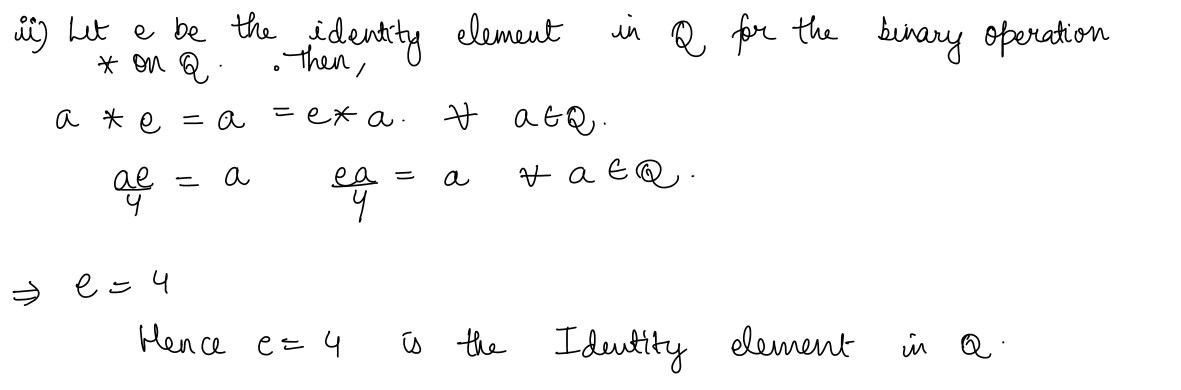 iii) Let e be the identity element in Q for the binary operation
* on Q. . Then,
a * e = a = e * a. ∀ a ∈ Q.
ae/4 = a ea/4 = a ∀ a ∈ Q.
⇒ e = 4
Hence e = 4 is the Identity element in Q.